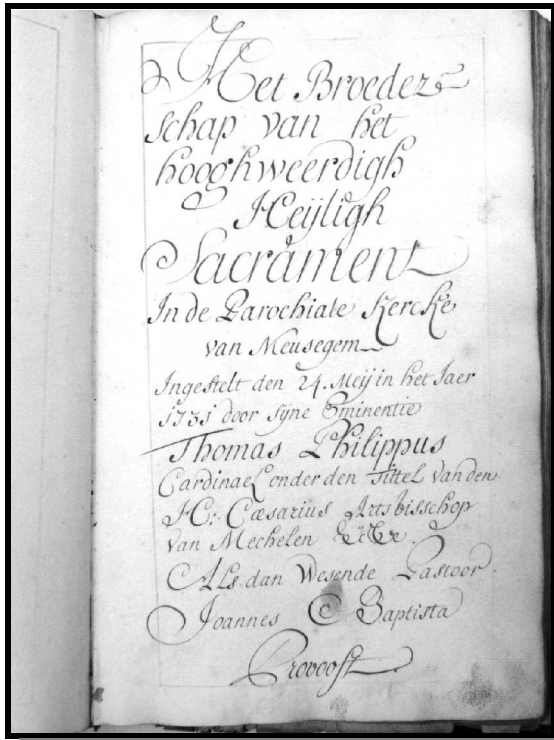 Het Broeder
schap van het
hooghweerdigh
Heÿligh
Sacrament
In de Parochiale Kercke
van Meusegem
Ingestelt den 24. Meÿ in het Iaer
1731 door sÿne Eminentie
Thomas Philippus
Cardinael onder den Tittel van den
H: Cæsarius Artsbisschop
van Mechelen
Als dan Wesende Pastoor.
Joannes Baptista
Provoost